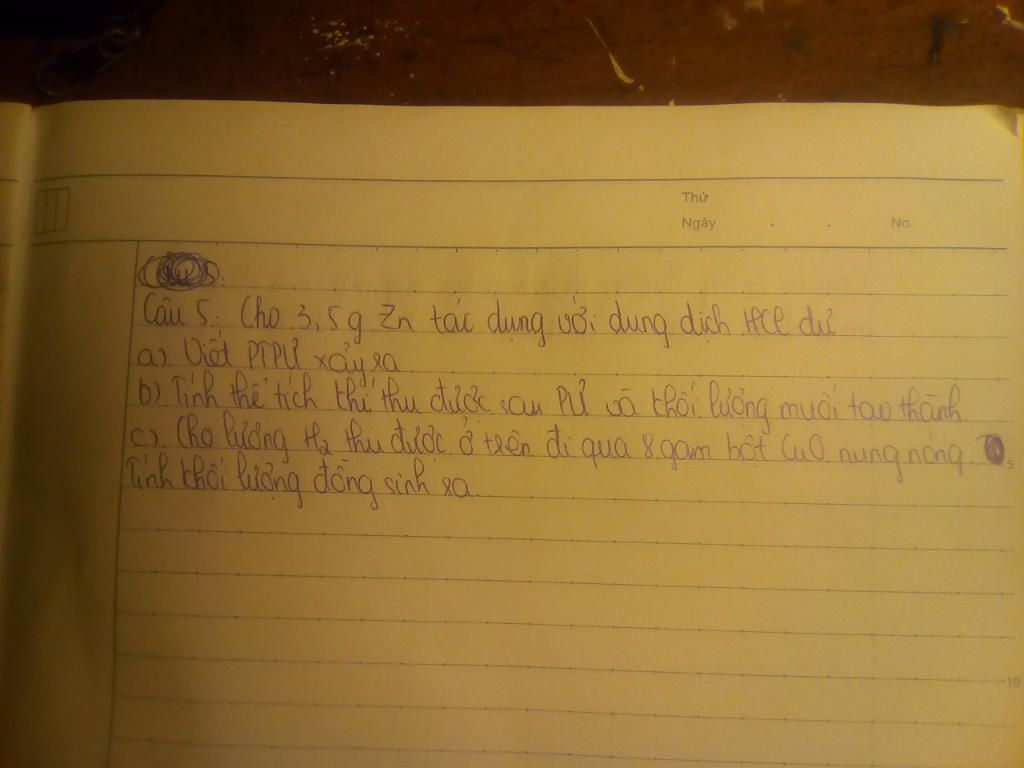 Thứ
Ngày . . No.
Câu 5: Cho 3,5g Zn tác dụng với dung dịch HCl dư
a). Viết PTPƯ xảy ra
b) Tính thể tích khí thu được sau PƯ và khối lượng muối tạo thành
c). Cho lượng H2 thu được ở trên đi qua 8 gam bột CuO nung nóng.
5
Tính khối lượng đồng sinh ra
10